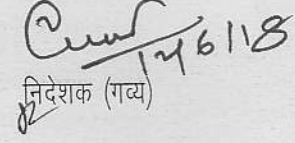 14/6/18
निदेशक (गव्य)